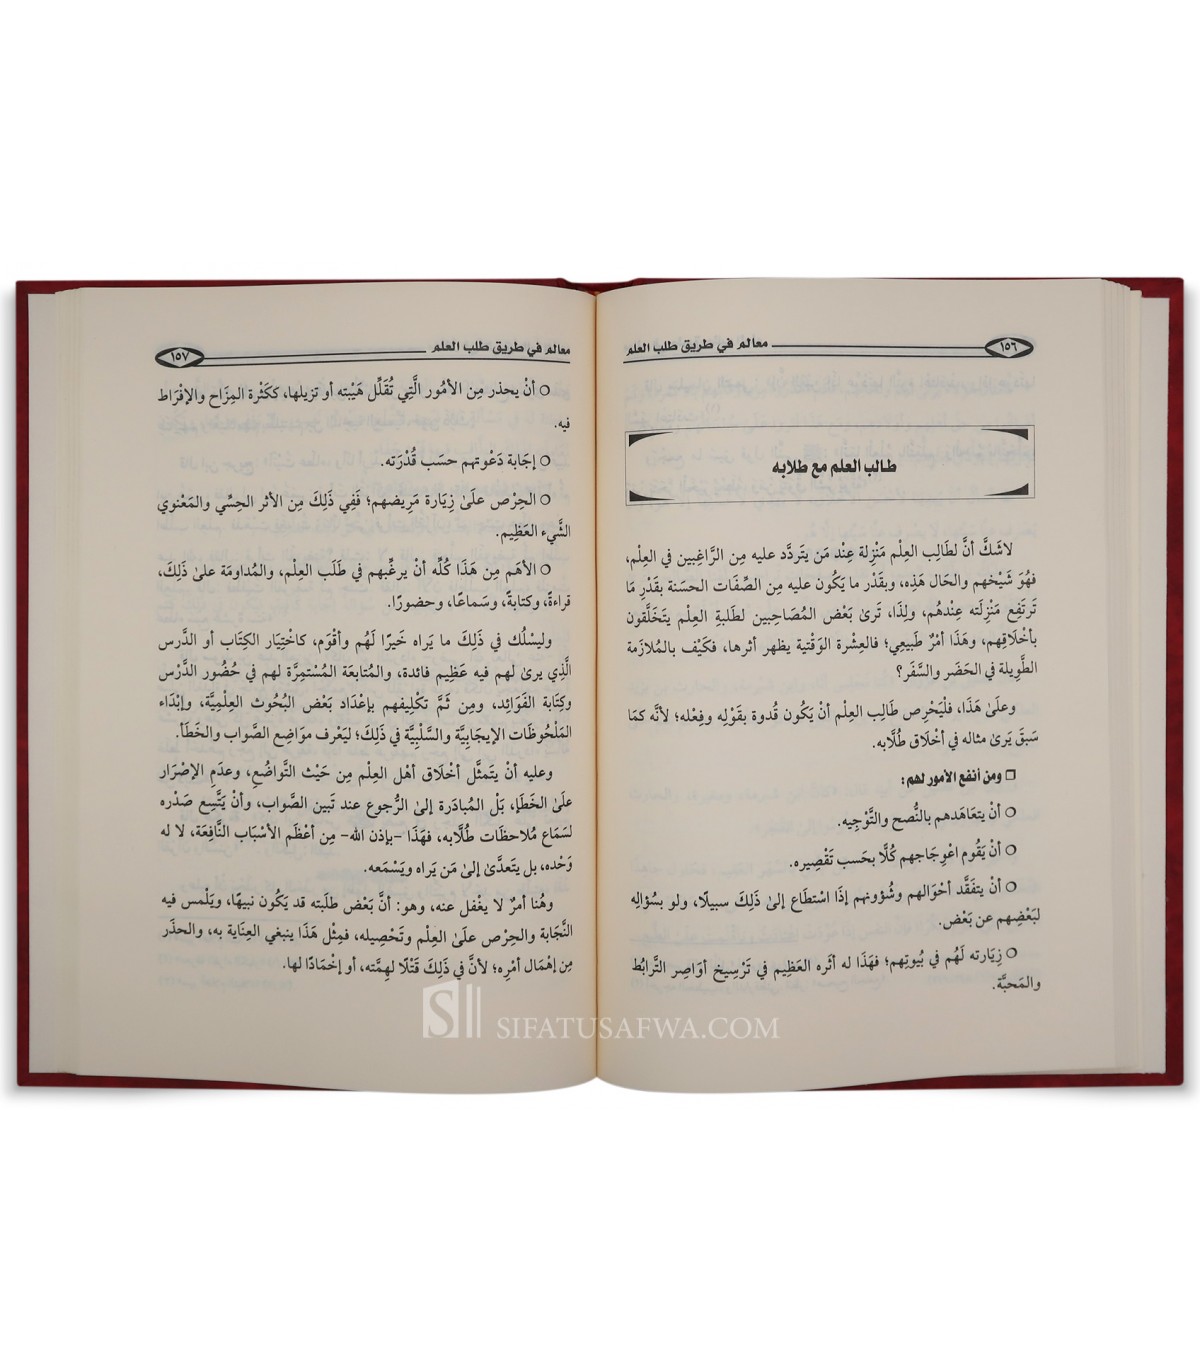 معالم في طريق طلب العلم
١٥٦
طالب العلم مع طلابه
لاشَكَّ أنَّ لطَالِب العِلْم مَنْزِلة عِنْد مَن يَتردَّد عليه مِن الرَّاغِبين في العِلْم،
فهُوَ شَيْخهم والحَال هَذِه، وبقَدْر ما يَكُون عليه مِن الصِّفَات الحَسَنة بقَدْرِ مَا
تَرتَفِع مَنْزِلَته عِنْدهُم، ولِذَا، تَرىٰ بَعْض المُصَاحِبين لطَلبةِ العِلْم يَتخَلَّقون
بأخْلَاقِهِم، وهَذَا أمْرٌ طَبيعِي؛ فالعِشْرة الوَقْتية يظهر أثرها، فكَيْف بالمُلازَمة
الطَّوِيلة في الحَضَر والسَّفَر؟
وعلىٰ هَذَا، فلْيَحْرِص طَالِب العِلْم أنْ يَكُون قُدوة بقَوْلِه وفِعْله؛ لأنَّه كمَا
سَبقَ يَرىٰ مثاله في أخْلَاق طُلَّابه.
❒ ومن أنفع الأمور لهم:
○ أنْ يتعَاهَدهم بالنُّصح والتَّوْجِيه.
○ أنْ يَقُوم اعْوِجَاجهم كُلًّا بحَسب تَقْصِيره.
○ أنْ يتفَقَّد أحْوَالهم وشُؤونهم إذَا اسْتطَاع إلىٰ ذَلِكَ سبيلًا، ولو بسُؤالِه
لبَعْضِهم عن بَعْض.
○ زِيَارته لَهُم في بيُوتِهم؛ فهَذَا له أثَره العَظِيم في تَرْسِيخ أوَاصِر التَّرابُط
والمَحبَّة.
معالم في طريق طلب العلم
١٥٧
○ أنْ يحذر مِن الأمُور الَّتِي تُقَلِّل هَيْبته أو تزيلها، ككَثْرة المِزَاح والإفْرَاط
فيه.
○ إجَابة دَعْوتهم حسَب قُدْرَته.
○ الحِرْص علَىٰ زِيَارة مَرِيضهم؛ فَفِي ذَلِكَ مِن الأثر الحِسِّي والمَعْنوي
الشَّيء العَظِيم.
○ الأهَم مِن هَذَا كُلِّه أنْ يرغِّبهم في طَلَب العِلْم، والمُداومَة علىٰ ذَلِكَ،
قراءةً، وكتابةً، وسَماعًا، وحضورًا.
وليسْلُك في ذَلِكَ ما يَراه خَيرًا لَهُم وأقْوَم، كاخْتِيَار الكِتَاب أو الدَّرس
الَّذِي يرىٰ لهم فيه عَظِيم فائدة، والمُتابعَة المُسْتمِرَّة لهم في حُضُور الدَّرْس
وكِتَابة الفَوَائِد، ومِن ثَمَّ تكْلِيفهم بإعْدَاد بَعْض البُحُوث العِلْمِيَّة، وإبْدَاء
المَلْحُوظَات الإيجَابِيَّة والسَّلْبِيَّة في ذَلِكَ؛ ليَعْرف موَاضِع الصَّواب والخَطَأ.
وعليه أنْ يتمَثَّل أخْلَاق أهْل العِلْم مِن حَيْث التَّواضُع، وعدَمِ الإصْرَار
علَىٰ الخَطَإ، بَلْ المُبادَرة إلىٰ الرُّجوع عند تَبين الصَّواب، وأنْ يَتَّسِع صَدْره
لسَمَاع مُلاحظَات طُلَّابه، فهَذَا -بإذن الله- مِن أعْظَم الأسْبَاب النَّافِعَة، لا له
وَحْده، بل يتَعدَّىٰ إلىٰ مَن يَراه ويَسْمَعه.
وهُنا أمرٌ لا يغْفل عنه، وهو: أنَّ بَعْض طَلَبته قد يَكُون نبيهًا، ويَلْمس فيه
النَّجَابة والحِرْص علَىٰ العِلْم وتَحْصِيله، فمِثْل هَذَا ينبغي العِنَاية به، والحذَر
مِن إهْمَال أمْرِه؛ لأنَّ في ذَلِكَ قَتْلًا لهِمَّته، أو إخْمَادًا لها.
SIFATUSAFWA.COM